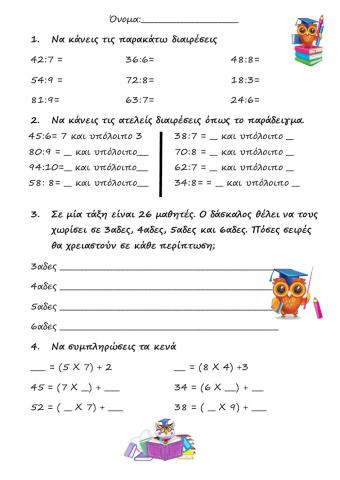 Όνομα:____________________
1. Να κάνεις τις παρακάτω διαιρέσεις
42:7 = 36:6= 48:8=
54:9 = 72:8= 18:3=
81:9= 63:7= 24:6=
2. Να κάνεις τις ατελείς διαιρέσεις όπως το παράδειγμα.
45:6= 7 και υπόλοιπο 3 38:7 = _ και υπόλοιπο _
80:9 = _ και υπόλοιπο__ 70:8 = _ και υπόλοιπο _
94:10=_ και υπόλοιπο__ 62:7 = _ και υπόλοιπο _
58: 8=_ και υπόλοιπο__ 34:8= = _ και υπόλοιπο _
3. Σε μία τάξη είναι 26 μαθητές. Ο δάσκαλος θέλει να τους
χωρίσει σε 3αδες, 4αδες, 5αδες και 6αδες. Πόσες σειρές
θα χρειαστούν σε κάθε περίπτωση;
3αδες ____________________
4αδες ____________________
5αδες ____________________
6αδες ____________________
4. Να συμπληρώσεις τα κενά
___ = (5 Χ 7) + 2 ___ = (8 Χ 4) +3
45 = (7 Χ _) + ___ 34 = (6 Χ __) + ___
52 = ( _ Χ 7) + ___ 38 = ( _ Χ 9) + ___